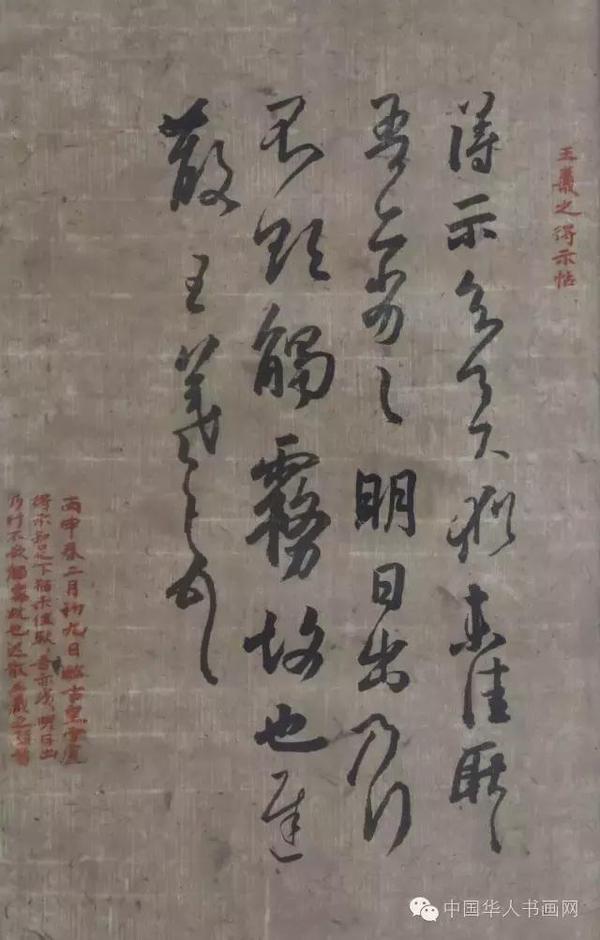 王羲之得示帖
得示知足下猶未佳耿〻
吾亦劣〻明日出乃行
不欲觸霧故也遲
散王羲之頓首
丙申春二月初九日
得示知足下猶未佳耿吾亦劣明日出
乃行不欲觸霧故也遲散王羲之頓首
中国华人书画网